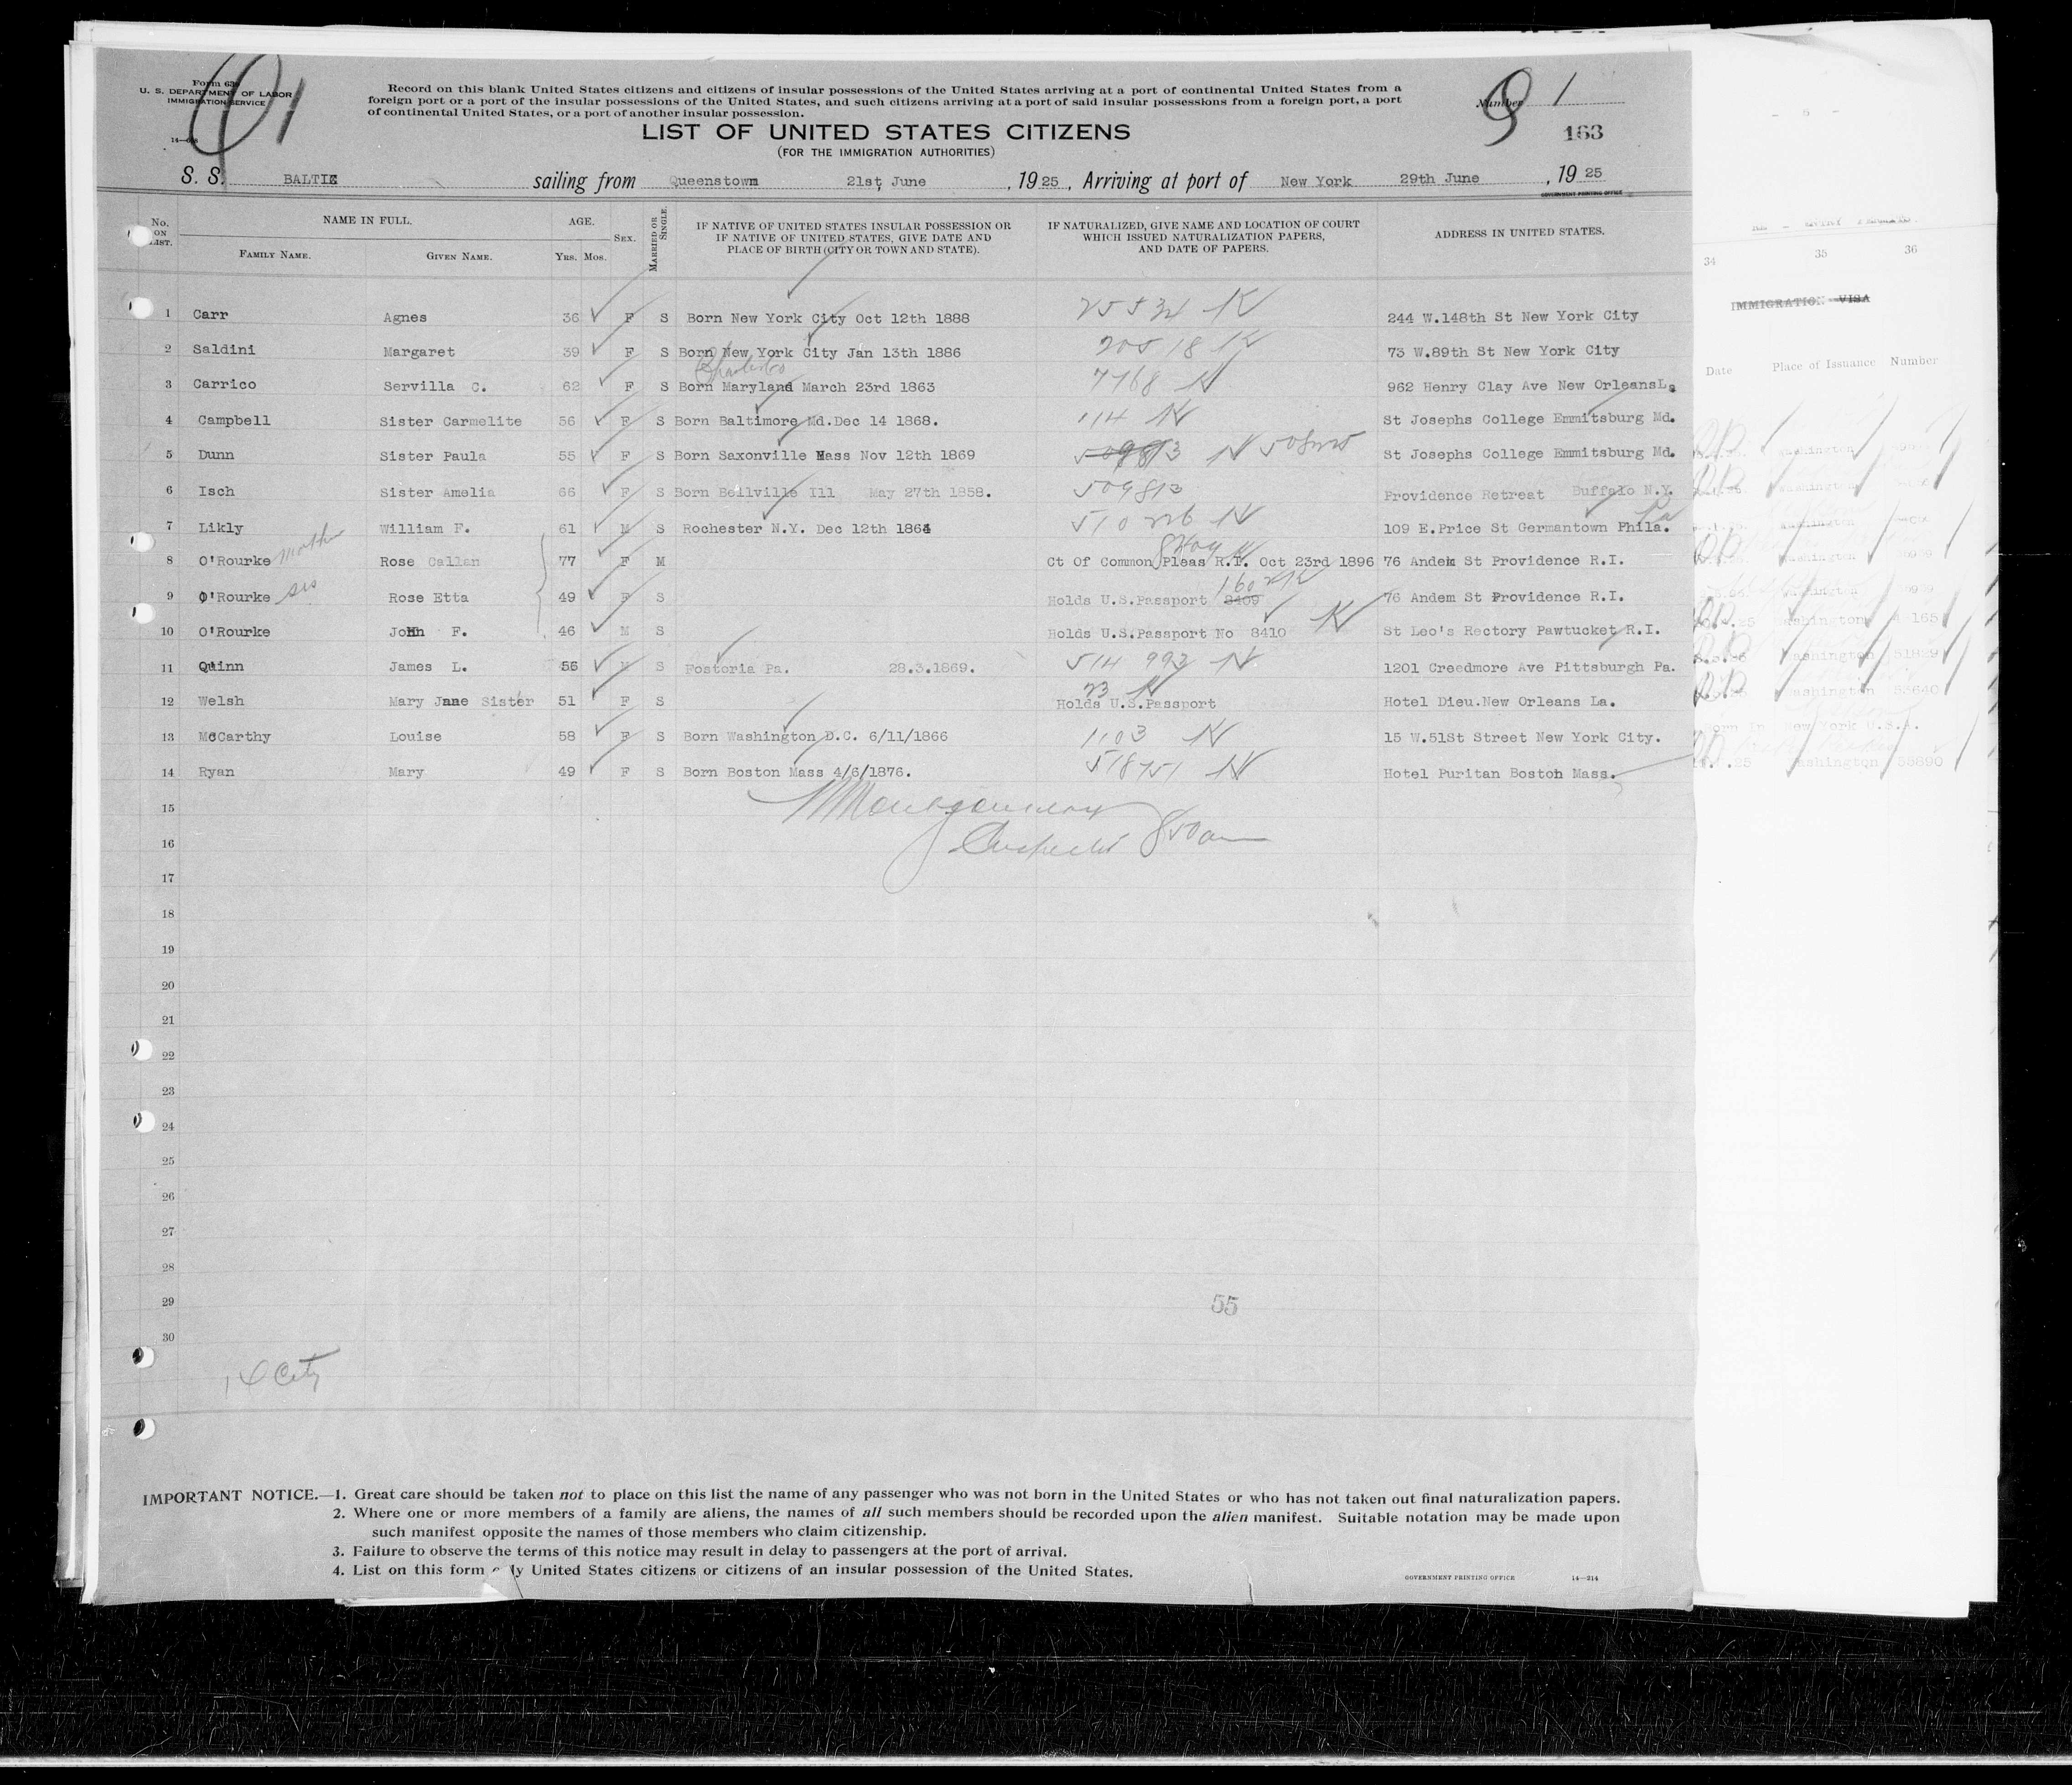 Form 63
U. S. DEPARTMENT OF LABOR
IMMIGRATION SERVICE
Record on this blank United States citizens and citizens of insular possessions of the United States arriving at a port of continental United States from a
foreign port or a port of the insular possessions of the United States, and such citizens arriving at a port of said insular possessions from a foreign port, a port
of continental United States, or a port of another insular possession.
Number 1
163
LIST OF UNITED STATES CITIZENS
(FOR THE IMMIGRATION AUTHORITIES)
S. S. BALTIC sailing from Queenstown 21st June , 19 25 , Arriving at port of New York 29th June , 19 25
GOVERNMENT PRINTING OFFICE
No. ON LIST. NAME IN FULL. FAMILY NAME. GIVEN NAME. AGE. Yrs. Mos. SEX. MARRIED OR SINGLE. IF NATIVE OF UNITED STATES INSULAR POSSESSION OR IF NATIVE OF UNITED STATES, GIVE DATE AND PLACE OF BIRTH (CITY OR TOWN AND STATE). IF NATURALIZED, GIVE NAME AND LOCATION OF COURT WHICH ISSUED NATURALIZATION PAPERS, AND DATE OF PAPERS. ADDRESS IN UNITED STATES.
1 Carr Agnes 36 F S Born New York City Oct 12th 1888 244 W.148th St New York City
2 Saldini Margaret 39 F S Born New York City Jan 13th 1886 20518 K 73 W.89th St New York City
3 Carrico Servilla C. 62 F S Born Maryland March 23rd 1863 7768 K 962 Henry Clay Ave New OrleansLa
4 Campbell Sister Carmelite 56 F S Born Baltimore Md.Dec 14 1868. 114 K St Josephs College Emmitsburg Md.
5 Dunn Sister Paula 55 F S Born Saxonville Mass Nov 12th 1869 St Josephs College Emmitsburg Md.
6 Isch Sister Amelia 66 F S Born Bellville Ill May 27th 1858. 509813 Providence Retreat Buffalo N.Y.
7 Likly William F. 61 M S Rochester N.Y. Dec 12th 1864 510226 K 109 E.Price St Germantown Phila. Pa
8 O'Rourke mother Rose Callan 77 F M 8409 K Ct Of Common Pleas R.I. Oct 23rd 1896 76 Andem St Providence R.I.
9 O'Rourke sis Rose Etta 49 F S Holds U.S.Passport 8409 76 Andem St Providence R.I.
10 O'Rourke John F. 46 M S Holds U.S.Passport No 8410 K St Leo's Rectory Pawtucket R.I.
11 Quinn James L. 56 M S Fostoria Pa. 28.3.1869. 514 993 K 1201 Creedmore Ave Pittsburgh Pa.
12 Welsh Mary Jane Sister 51 F S 23 K Holds U.S.Passport Hotel Dieu.New Orleans La.
13 McCarthy Louise 58 F S Born Washington D.C. 6/11/1866 1103 K 15 W.51St Street New York City.
14 Ryan Mary 49 F S Born Boston Mass 4/6/1876. 518751 K Hotel Puritan Boston Mass.
15
16 Inspector 850am
17
18
19
20
21
22
23
24
25
26
27
28
29 55
30
IMPORTANT NOTICE.—1. Great care should be taken not to place on this list the name of any passenger who was not born in the United States or who has not taken out final naturalization papers.
2. Where one or more members of a family are aliens, the names of all such members should be recorded upon the alien manifest. Suitable notation may be made upon
such manifest opposite the names of those members who claim citizenship.
3. Failure to observe the terms of this notice may result in delay to passengers at the port of arrival.
4. List on this form ly United States citizens or citizens of an insular possession of the United States.
GOVERNMENT PRINTING OFFICE 14—214
34 35 36
IMMIGRATION VISA
Date Place of Issuance Number
Washington
Washington
Washington
Washington
Washington 51829
Washington 53640
New York U.S.A.
Washington 58890